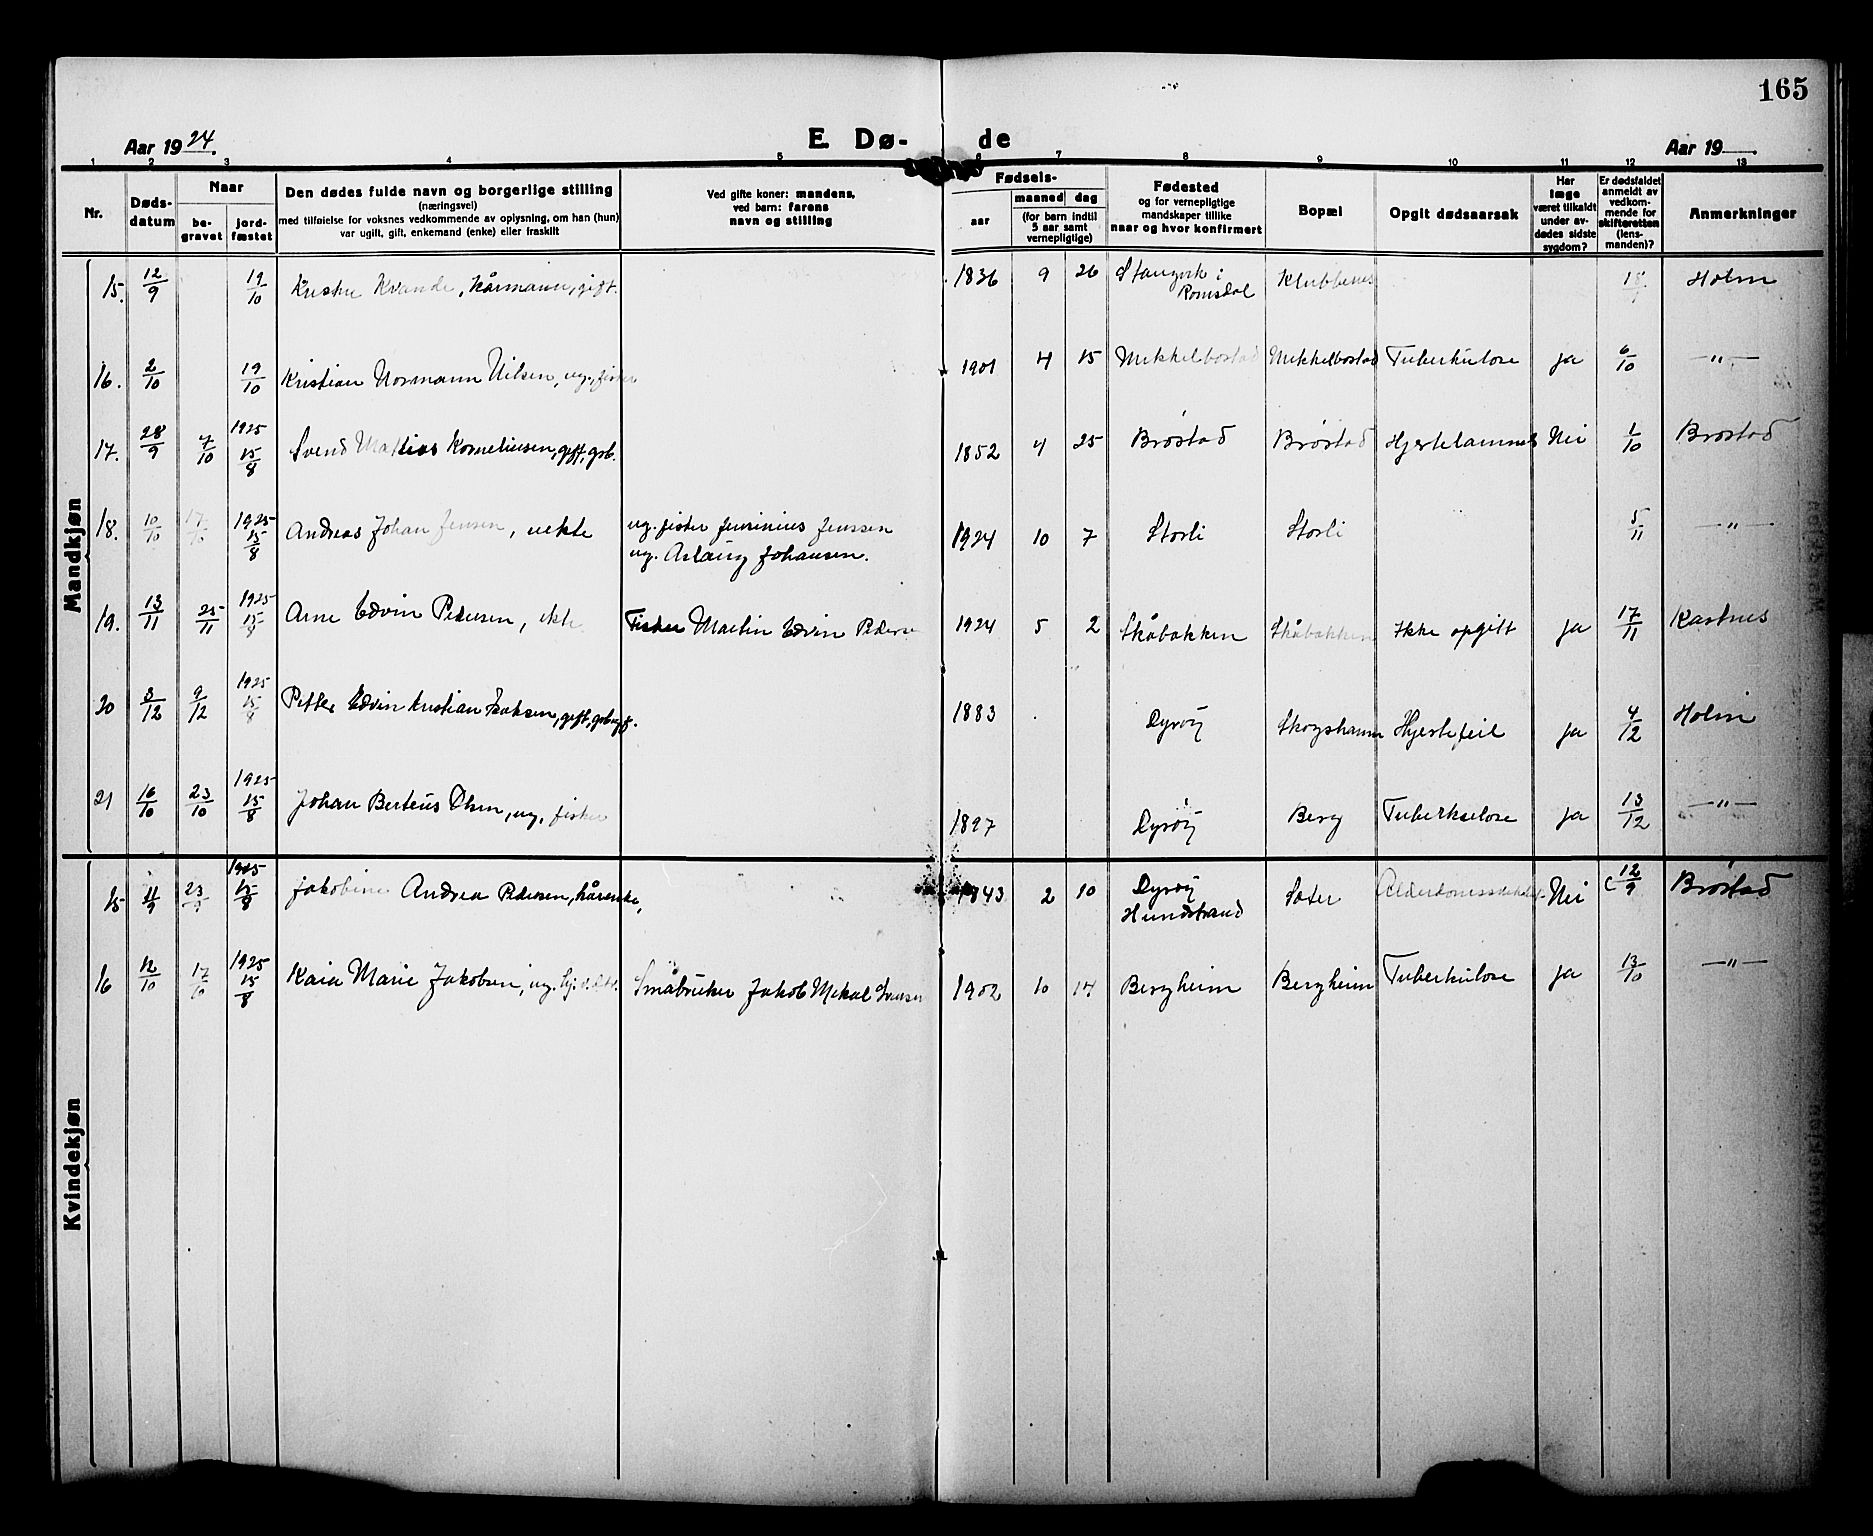 165
Aar 1924.
E. Dø- de
Aar 19
1 2 3 4 5 6 7 8 9 10 11 12 13
Nr.
Døds-
datum
Naar
be-
gravet
jord-
fæstet
Den dødes fulde navn og borgerlige stilling
(næringsvei)
med tilføielse for voksnes vedkommende av oplysning, om han (hun)
var ugift, gift, enkemand (enke) eller fraskilt
Ved gifte koner: mandens,
ved barn: farens
navn og stilling
Fødsels-
aar
maaned dag
(for barn indtil
5 aar samt
vernepligtige)
Fødested
og for vernepligtige
mandskaper tillike
naar og hvor konfirmert
Bopæl
Opgit dødsaarsak
Har
læge
været tilkaldt
under av-
dødes sidste
sygdom?
Er dødsfaldet
anmeldt av
vedkom-
mende for
skifteretten
(lens-
manden)?
Anmerkninger
Mandkjøn
15. 12/9 19/10 Kvande, kårmann, gift. 1836 9 26 Stangvik i Klubbenes Holm
Romsdal
16. 2/10 19/10 Kristian Normann Nilsen, ug., fisker 1901 4 15 Mikkelbostad Mikkelbostad Tuberkulose ja 6/10 —"—
17. 28/9 7/10 1925 15/8 Svend Matias Korneliusen, gift, grb. 1852 4 25 Brøstad Brøstad Hjertelammelse Nei 1/10 Brøstad
18. 10/10 17/10 1925 15/8 Andreas Johan Jensen, uekte ug. fisker Jensinius Jenssen 1924 10 7 Storli Storli 5/11 —"—
ug. Aslaug Johansen.
19. 13/11 25/11 1925 15/8 Arne Edvin Pedersen, ekte Fisker Martin Edvin Pedersen 1924 5 2 Skåbakken Skåbakken Ikke opgitt ja 17/11 Kastnes
20 3/12 9/12 1925 15/8 Petter Edvin Kristian Isaksen, gift, 1883 Dyrøy Skogshamn Hjertefeil ja 4/12 Holm
21 16/10 23/10 1925 15/8 Johan Berteus Olsen, ug., fisker 1897 Dyrøy Berg Tuberkulose ja 13/12 —"—
Kvindekjøn
15 11/9 23/9 1925 15/8 Jakobine Andrea Pedersen, kårenke, 1843 2 10 Dyrøy Sæter Nei 12/9 Brøstad
Hundstrand
16 12/10 17/10 1925 15/8 Kaia Marie Jakobsen, ug. Småbruker Jakob Mikal 1902 10 14 Bergheim Bergheim Tuberkulose ja 13/10 —"—